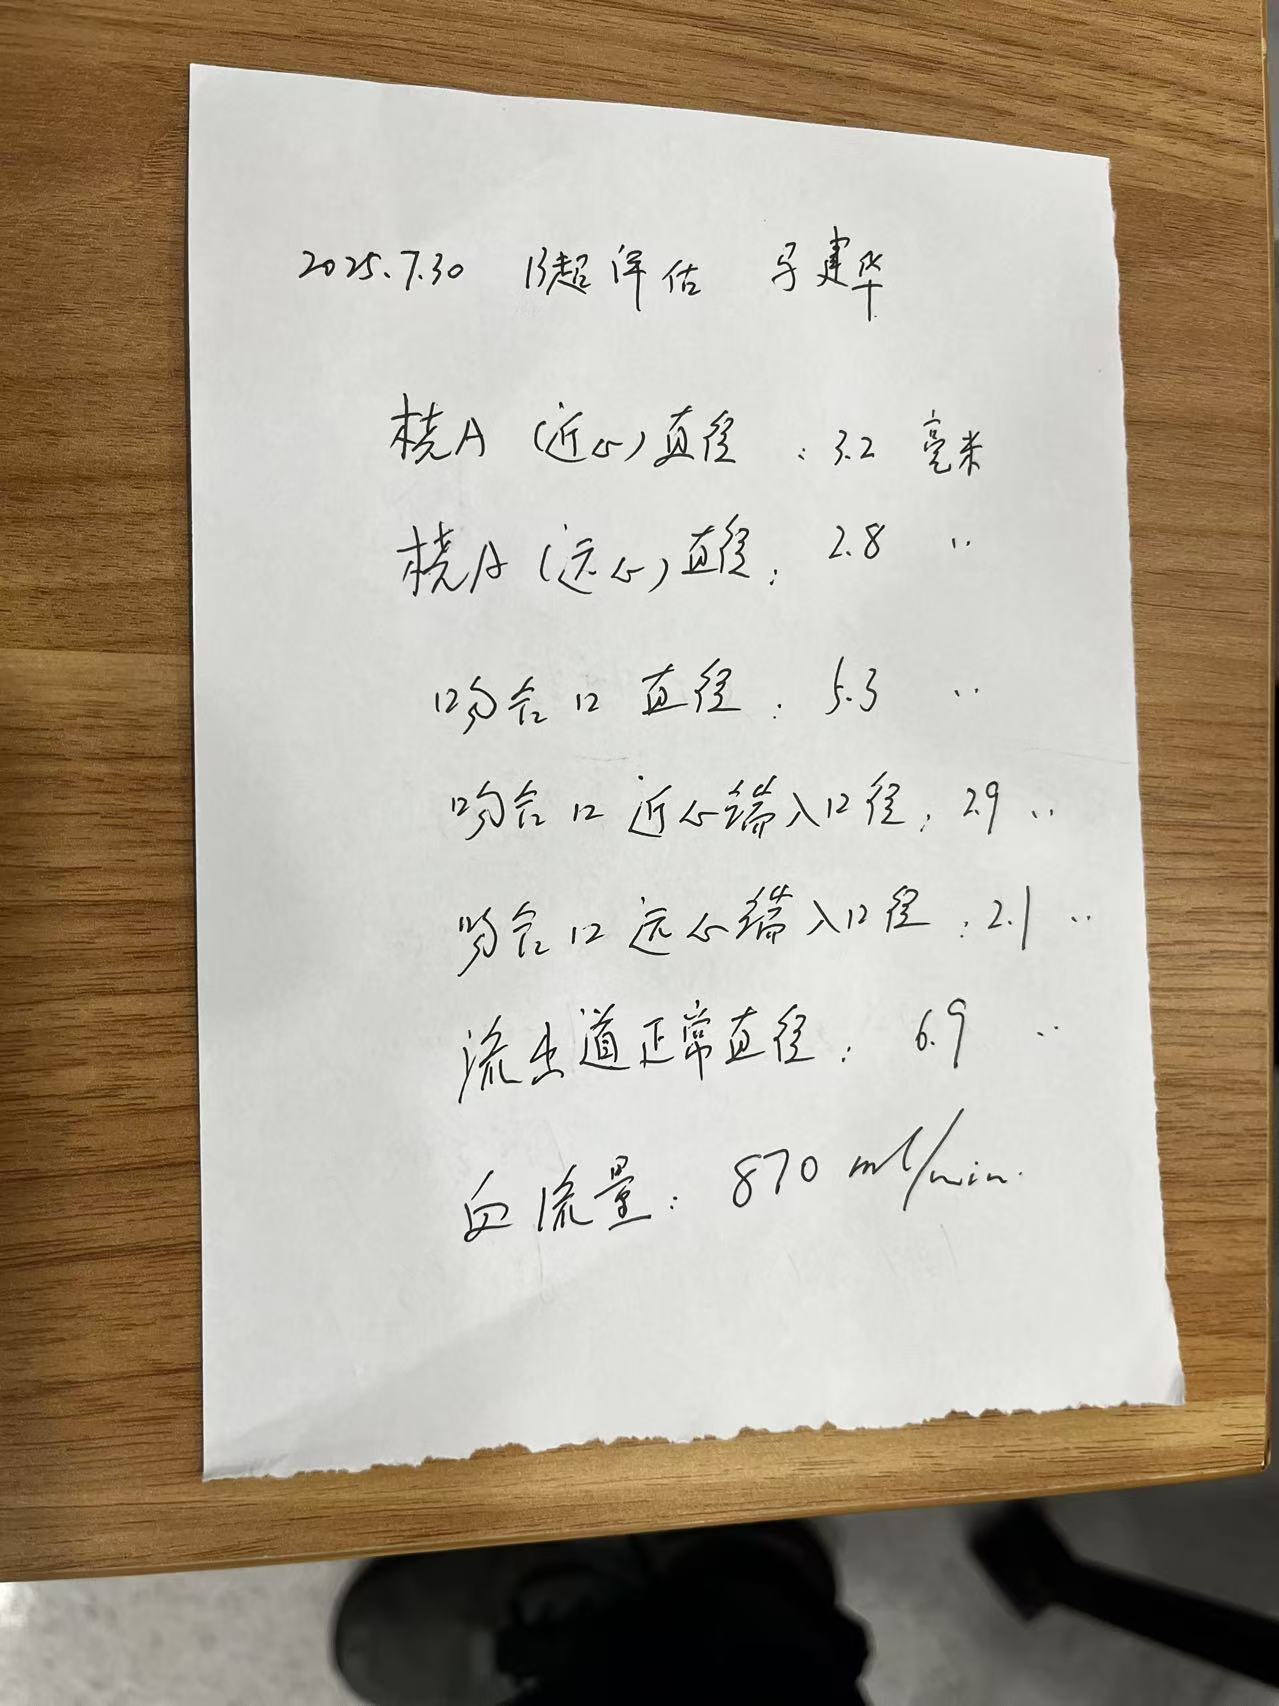 2025.7.30 B超评估 建华
桡A (近心) 直径 : 3.2 毫米
桡A (远心) 直径 : 2.8 〃
吻合口 直径 : 5.3 〃
吻合口 近心端入口径 : 2.9 〃
吻合口 远心端入口径 : 2.1 〃
流出道正常直径 : 6.9 〃
血流量 : 870 ml/min.